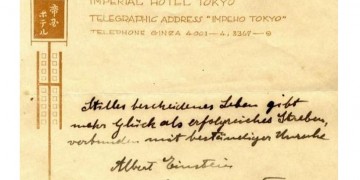 帝国
ホテル
IMPERIAL HOTEL TOKYO
TELEGRAPHIC ADDRESS "IMPEHO TOKYO"
TELEPHONE GINZA
Stilles bescheidenes Leben gibt
mehr Glück als erfolgreiches Streben,
verbunden mit beständiger Unruhe
Albert Einstein